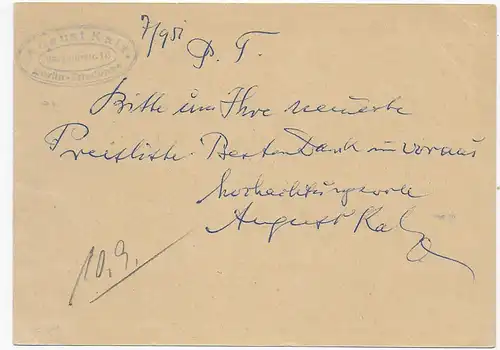 August Kalz
7/9 51
P. T.
Bitte um Ihre neueste
Preisliste. Besten Dank im voraus
hochachtungsvoll
August Kalz
10.9.